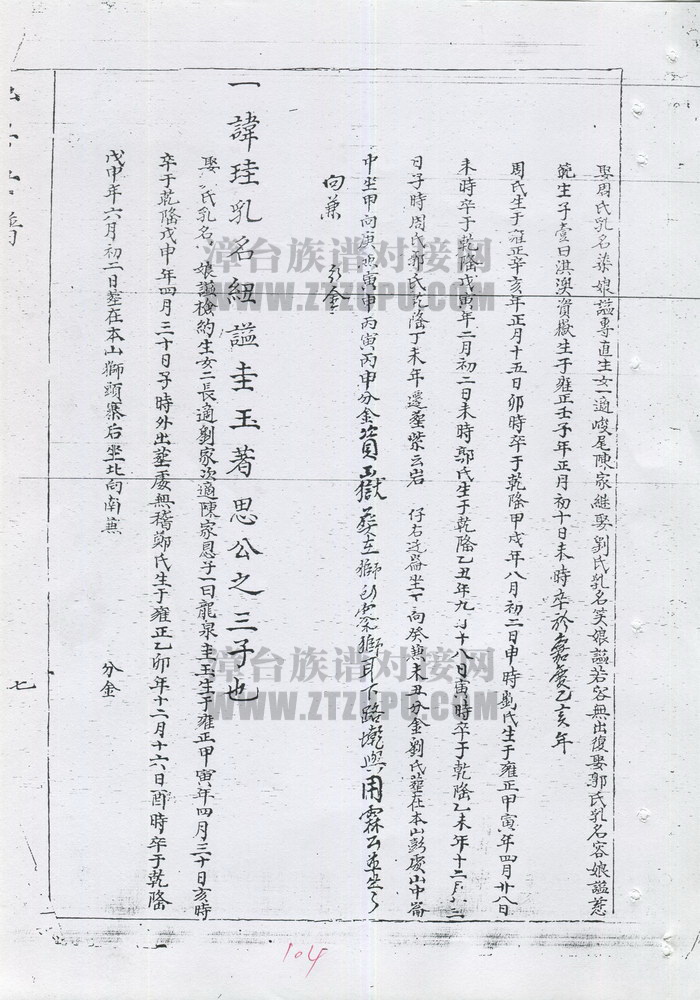 娶周氏乳名染娘謚專直生女一適峻尾陳家継娶劉氏乳名笑娘謚若容無出復娶郭氏乳名容娘謚慈
範生子壹曰淇澳資嶽生于雍正壬子年正月初十日未時卒於嘉慶乙亥年
周氏生于雍正辛亥年正月十五日卯時卒于乾隆甲戌年八月初二日申時劉氏生于雍正甲寅年四月廿八日
未時卒于乾隆戊寅年二月初二日未時郭氏生于乾隆乙丑年九月十八日寅時卒于乾隆乙未年十二月
日子時周氏郭氏乾隆丁未年遷塟紫云岩 仔右边崙坐丁向癸兼未丑分金劉氏塟在本山彭處山中崙
中坐甲向庚兼寅申丙寅丙申分金資嶽葬在獅形寨獅耳下路墘與用霖公
向兼 分金
一諱珪乳名紐謚圭玉著思公之三子也
娶 氏乳名 娘謚檢約生女二長適劉家次適陳家恩子一曰龍泉圭玉生于雍正甲寅年四月三十日亥時
卒于乾隆戊申年四月三十日子時外出塟處無稽鄭氏生于雍正乙卯年十二月十六日酉時卒于乾隆
戊申年六月初二日塟在本山獅頭寨后坐北向南兼 分金
七
104
漳台族谱对接网
WWW.ZTZUPU.COM
漳台族谱对接网
WWW.ZTZUPU.COM